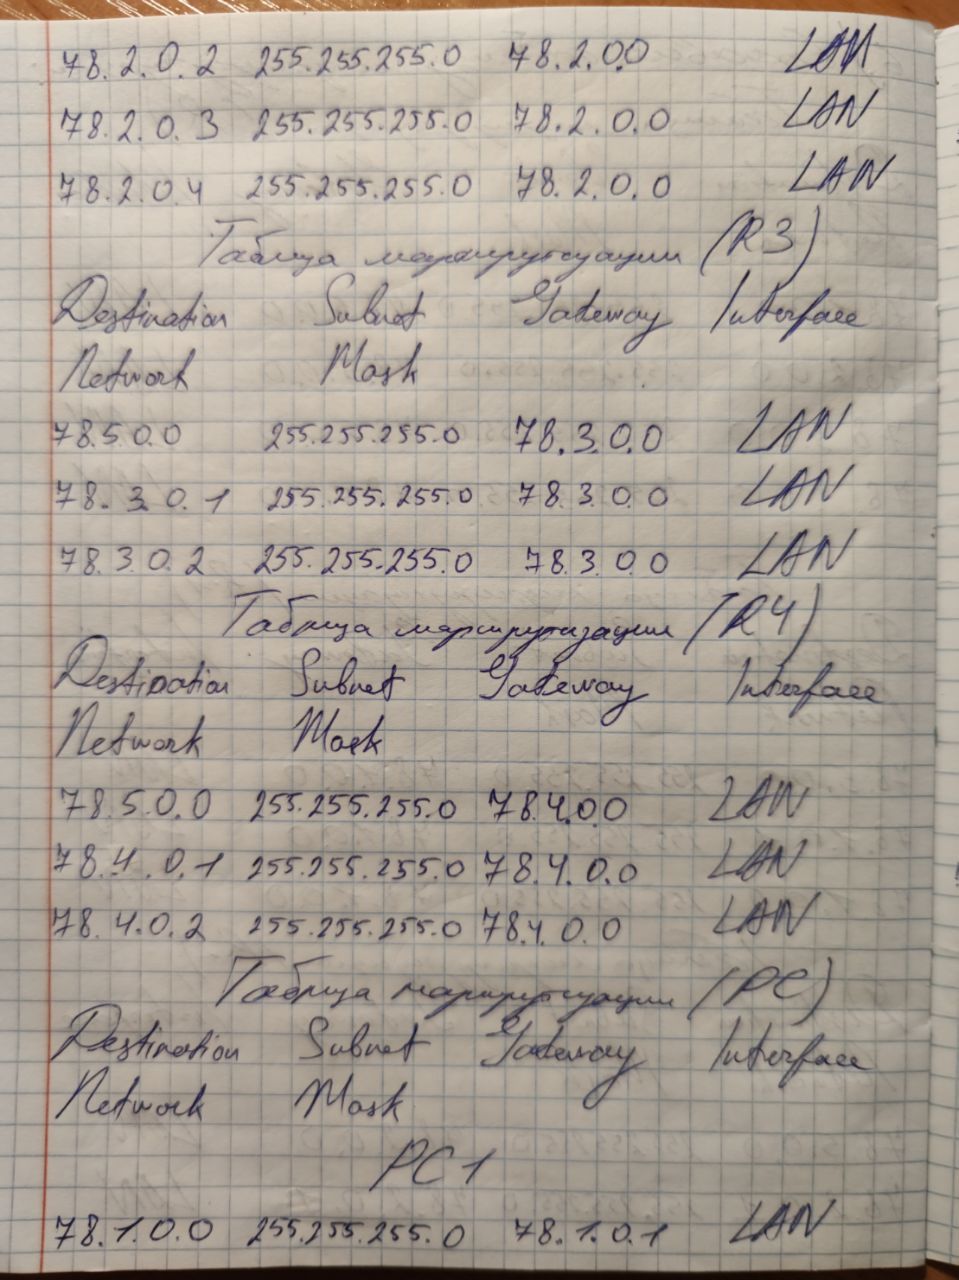 78.2.0.2 255.255.255.0 78.2.0.0 LAN
78.2.0.3 255.255.255.0 78.2.0.0 LAN
78.2.0.4 255.255.255.0 78.2.0.0 LAN
Таблица маршрутизации (R3)
Destination Subnet Gateway Interface
Network Mask
78.5.0.0 255.255.255.0 78.3.0.0 LAN
78.3.0.1 255.255.255.0 78.3.0.0 LAN
78.3.0.2 255.255.255.0 78.3.0.0 LAN
Таблица маршрутизации (R4)
Destination Subnet Gateway Interface
Network Mask
78.5.0.0 255.255.255.0 78.4.0.0 LAN
78.4.0.1 255.255.255.0 78.4.0.0 LAN
78.4.0.2 255.255.255.0 78.4.0.0 LAN
Таблица маршрутизации (PC)
Destination Subnet Gateway Interface
Network Mask
PC1
78.1.0.0 255.255.255.0 78.1.0.1 LAN